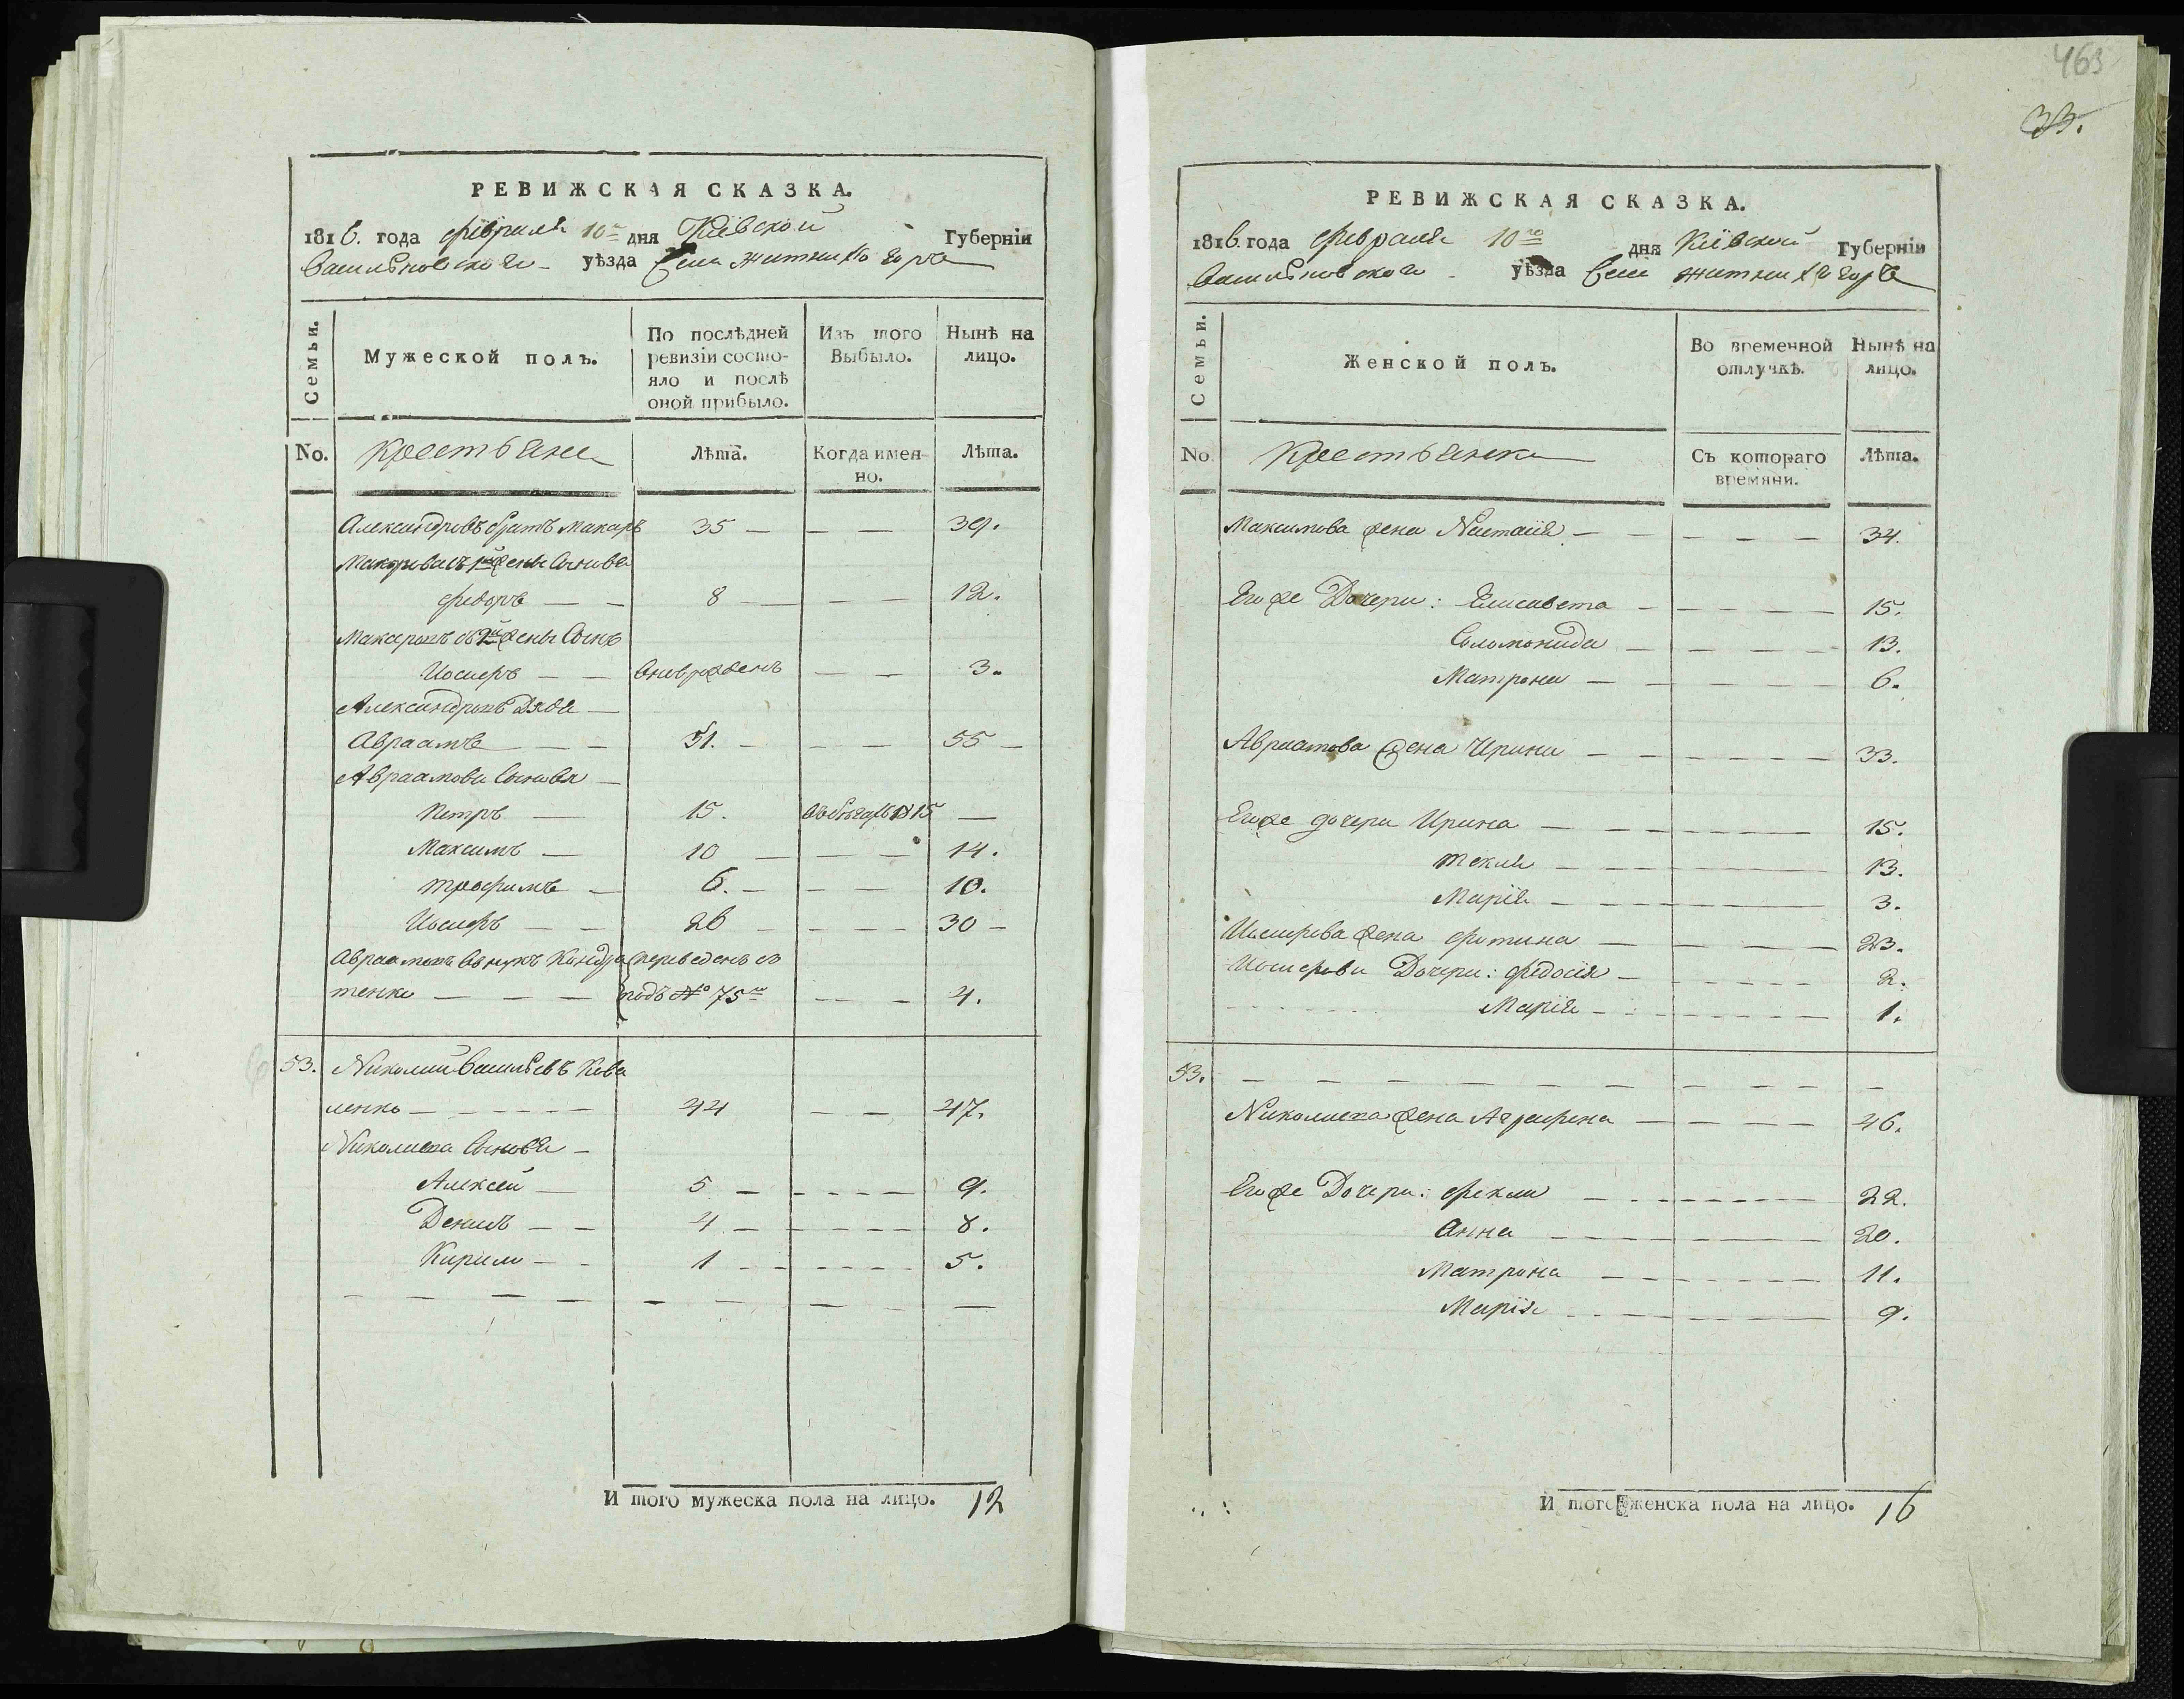 РЕВИЖСКАЯ СКАЗКА.
1816. года февраля 10го дня Кіевской Губерніи
Васильковскаго уѣзда Села Житнихъ горъ
Семьи.
Мужеской полъ.
По послѣдней ревизіи состояло и послѣ оной прибыло.
Изъ того Выбыло.
Нынѣ на лицо.
No. Крестьяне Лѣта. Когда именно. Лѣта.
Александровъ братъ Макаръ 35 — — — 39.
Макарова съ 1й жены Сыновья
Федоръ — — 8 — — — 12.
Макаровъ съ 2й жены Сынъ
Иосифъ — — вновьрожденъ — — 3.
Александровъ Дядя —
Авраамъ — — 51. — — — 55 —
Авраамови Сыновья —
Петръ — 15. 1815 —
Максимъ — 10 — — — 14.
Трофимъ — 6. — — — 10.
Иосифъ — — 26 — — — 30 —
Авраамовъ внукъ переведенъ
тенко — — — подъ № 75 — — 4.
53. Николай Васильевъ Кова
ленко — — — — — 44 — — 47.
Николаева Сыновья —
Алексей — 5 — — — — — 9.
Денисъ — — 4 — — — — 8.
Кирило — — 1 — — — — — — 5.
— — — — — — — — —
И того мужеска пола на лицо. 12
463
33.
РЕВИЖСКАЯ СКАЗКА.
1816. года февраля 10го дня Кіевской Губерніи
Васильковскаго уѣзда Села Житнихъ горъ
Семьи.
Женской полъ.
Во временной отлучкѣ.
Нынѣ на лицо.
No Крестьянки Съ котораго времяни. Лѣта.
Максимова жена Настасія — — — — — 34.
Егоже Дочери: Елисавета — — — — — 15.
Соломонида — — — — 13.
Матрона — — — — — 6.
Авраамова жена Ирина — — — — — — 33.
Егоже дочери Ирина — — — — — 15.
Текля — — — — — 13.
Марія — — — — 3.
Иосифова жена Фотина — — — — 23.
Иосифови Дочери: Федосія — — — — — 2.
Марія — — — — — — 1.
53. — — — — — — — — — —
Николаева жена Агрифена — — — — 46.
Егоже Дочери: Фекла — — — — — — 22.
Анна — — — — — 20.
Матрона — — — — — — 11.
Марія — — — — — 9.
И того женска пола на лицо. 16